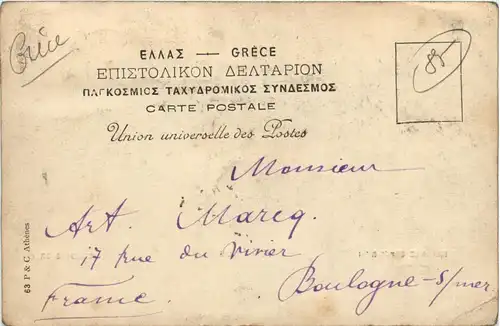 Grèce
ΕΛΛΑΣ — GRÈCE
88
ΕΠΙΣΤΟΛΙΚΟΝ ΔΕΛΤΑΡΙΟΝ
ΠΑΓΚΟΣΜΙΟΣ ΤΑΧΥΔΡΟΜΙΚΟΣ ΣΥΝΔΕΣΜΟΣ
CARTE POSTALE
Union universelle des Postes
Monsieur
Art. Marcq.
17 rue du Vivier
Boulogne-s/mer
France.
63 P & C. Athènes